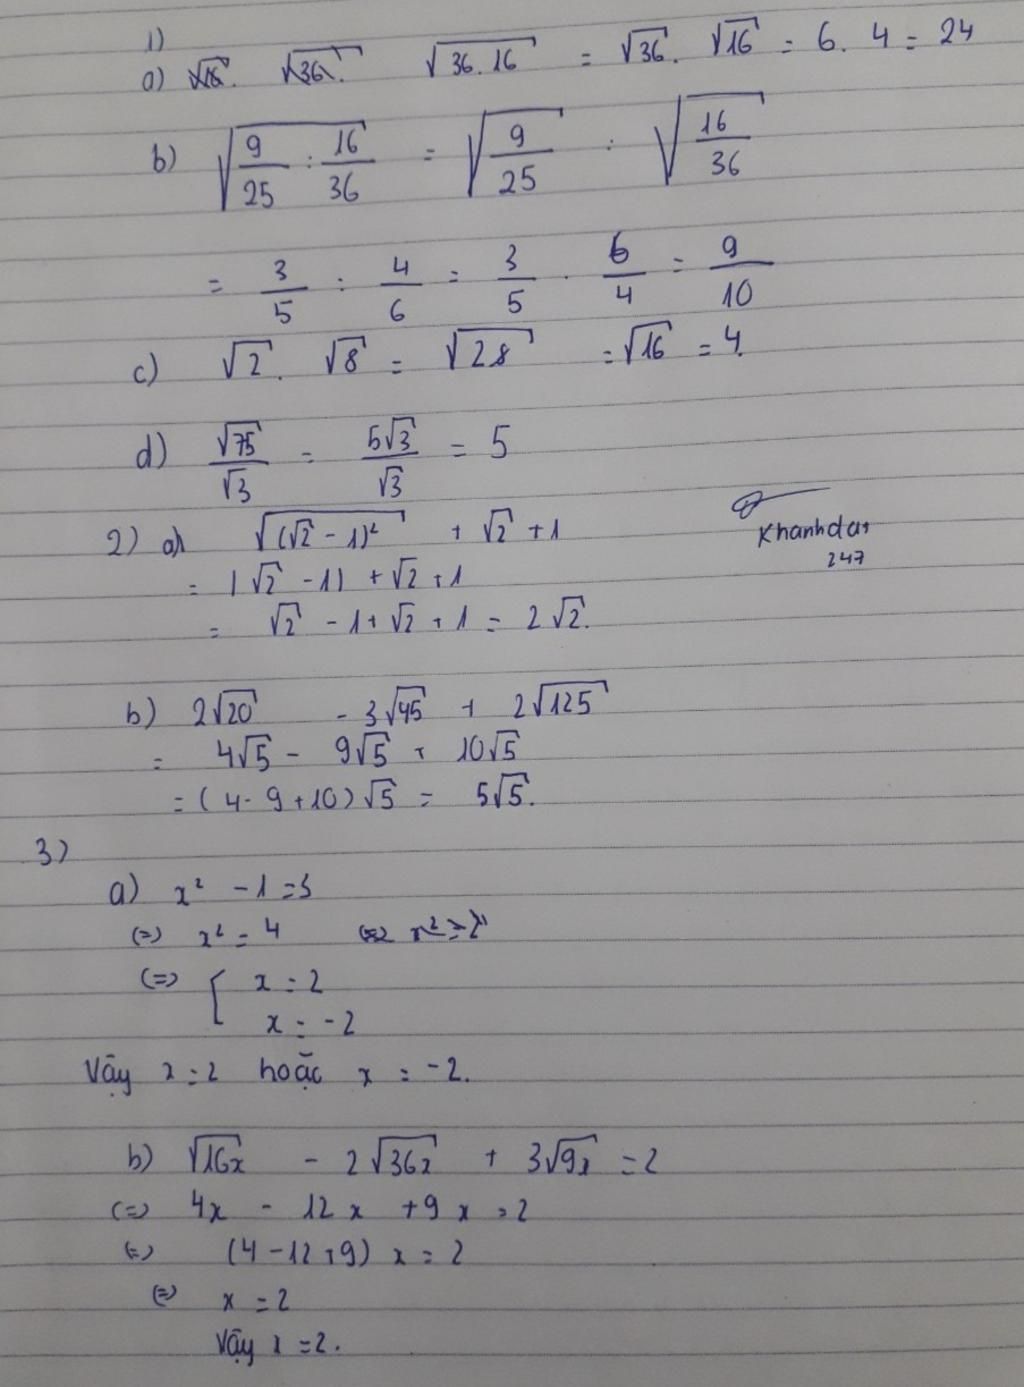 1)
a) √36.16 = √36. √16 = 6. 4 = 24
b) √(9/25 : 16/36) = √(9/25) : √(16/36)
= 3/5 : 4/6 = 3/5 . 6/4 = 9/10
c) √2. √8 = √2.8 = √16 = 4.
d) √75/√3 = 5√3/√3 = 5
Khanhdat
247
2) a) √((√2 - 1)²) + √2 + 1
= |√2 - 1| + √2 + 1
= √2 - 1 + √2 + 1 = 2√2.
b) 2√20 - 3√45 + 2√125
= 4√5 - 9√5 + 10√5
= (4 - 9 + 10)√5 = 5√5.
3)
a) x² - 1 = 3
(=) x² = 4
(=) [ x = 2
x = -2
Vậy x = 2 hoặc x = -2.
b) √16x - 2√36x + 3√9x = 2
(=) 4x - 12x + 9x = 2
(=) (4 - 12 + 9) x = 2
(=) x = 2
Vậy x = 2.